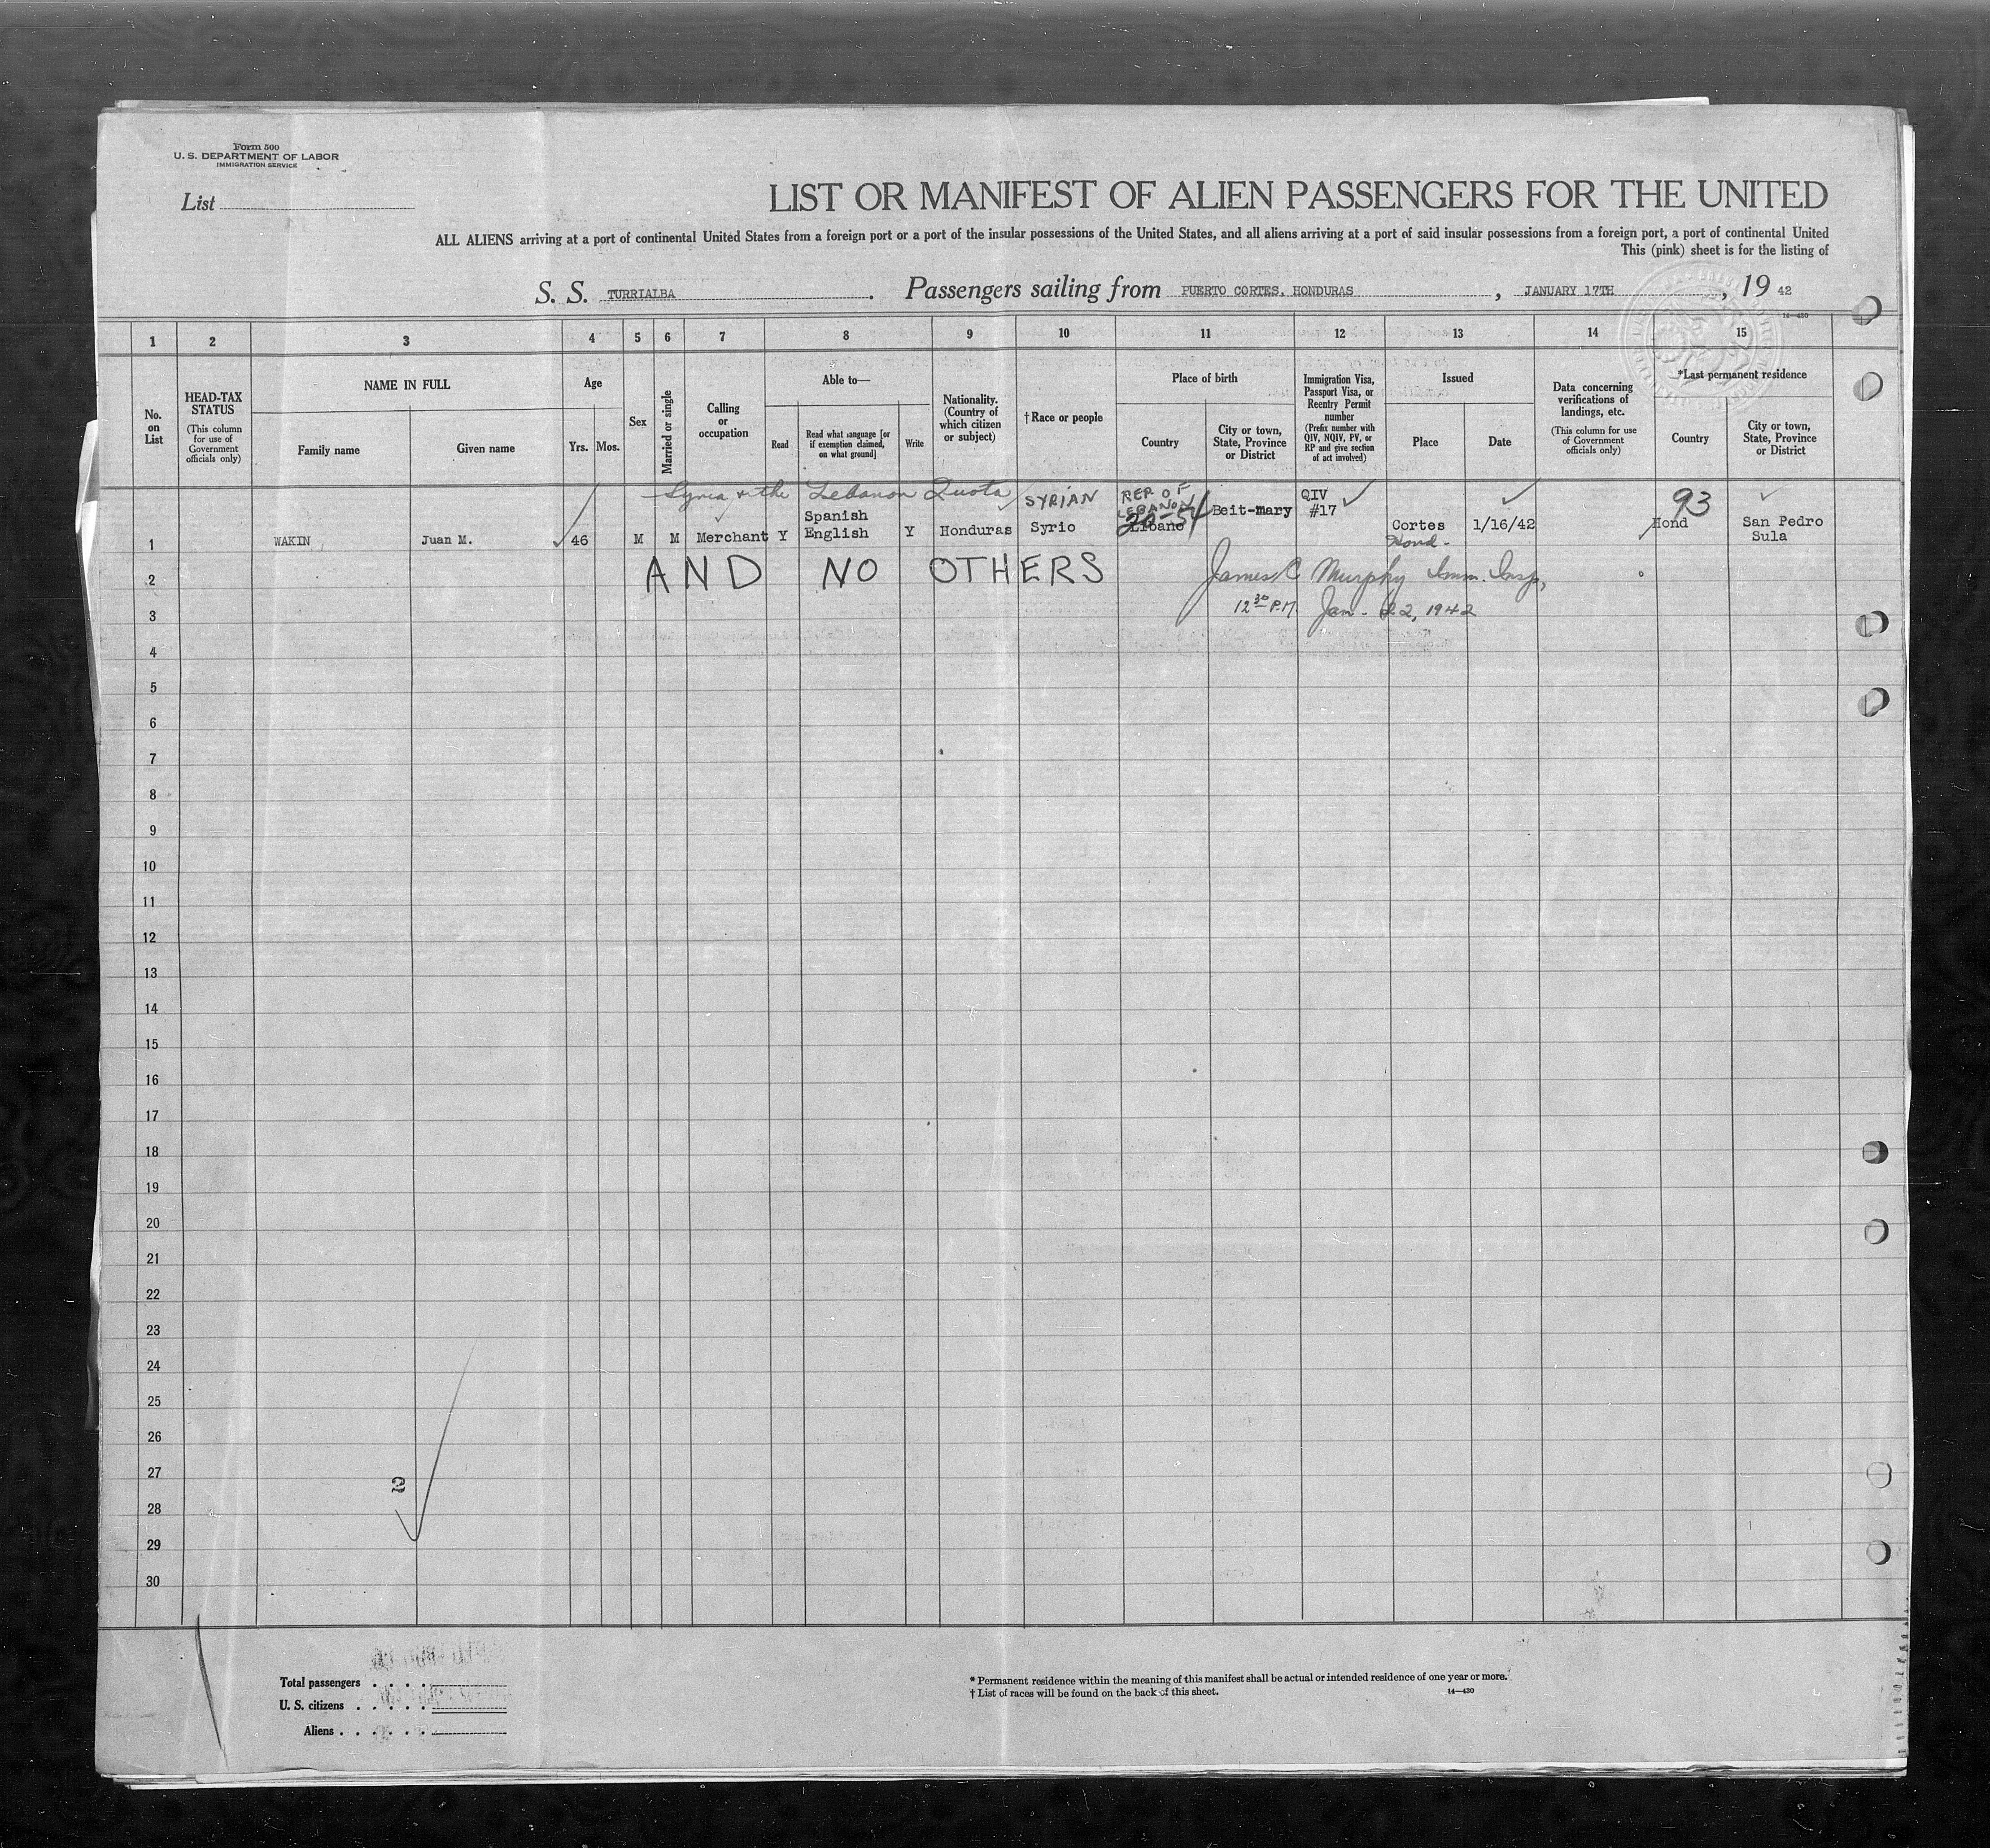 Form 500
U. S. DEPARTMENT OF LABOR
IMMIGRATION SERVICE
List
LIST OR MANIFEST OF ALIEN PASSENGERS FOR THE UNITED
ALL ALIENS arriving at a port of continental United States from a foreign port or a port of the insular possessions of the United States, and all aliens arriving at a port of said insular possessions from a foreign port, a port of continental United
This (pink) sheet is for the listing of
S. S. TURRIALBA. Passengers sailing from PUERTO CORTES, HONDURAS, JANUARY 17TH, 19 42
14—430
1 2 3 4 5 6 7 8 9 10 11 12 13 14 15
No. on List
HEAD-TAX STATUS
(This column for use of Government officials only)
NAME IN FULL
Family name
Given name
Age
Yrs. Mos.
Sex
Married or single
Calling or occupation
Able to—
Read
Read what language [or if exemption claimed, on what ground]
Write
Nationality. (Country of which citizen or subject)
†Race or people
Place of birth
Country
City or town, State, Province or District
Immigration Visa, Passport Visa, or Reentry Permit number
(Prefix number with QIV, NQIV, PV, or RP and give section of act involved)
Issued
Place
Date
Data concerning verifications of landings, etc.
(This column for use of Government officials only)
*Last permanent residence
Country
City or town, State, Province or District
Syria & the Lebanon Quota SYRIAN REP OF LEBANON 93
20-54
1 WAKIN Juan M. 46 M M Merchant Y Spanish English Y Honduras Syrio Libano Beit-mary QIV #17 Cortes Hond. 1/16/42 Hond San Pedro Sula
2 AND NO OTHERS James C Murphy Imm. Insp.
3 12 30 P.M. Jan. 22, 1942
4
5
6
7
8
9
10
11
12
13
14
15
16
17
18
19
20
21
22
23
24
25
26
27
28
29
30
2
Total passengers
U. S. citizens
Aliens
* Permanent residence within the meaning of this manifest shall be actual or intended residence of one year or more.
† List of races will be found on the back of this sheet.
14—430